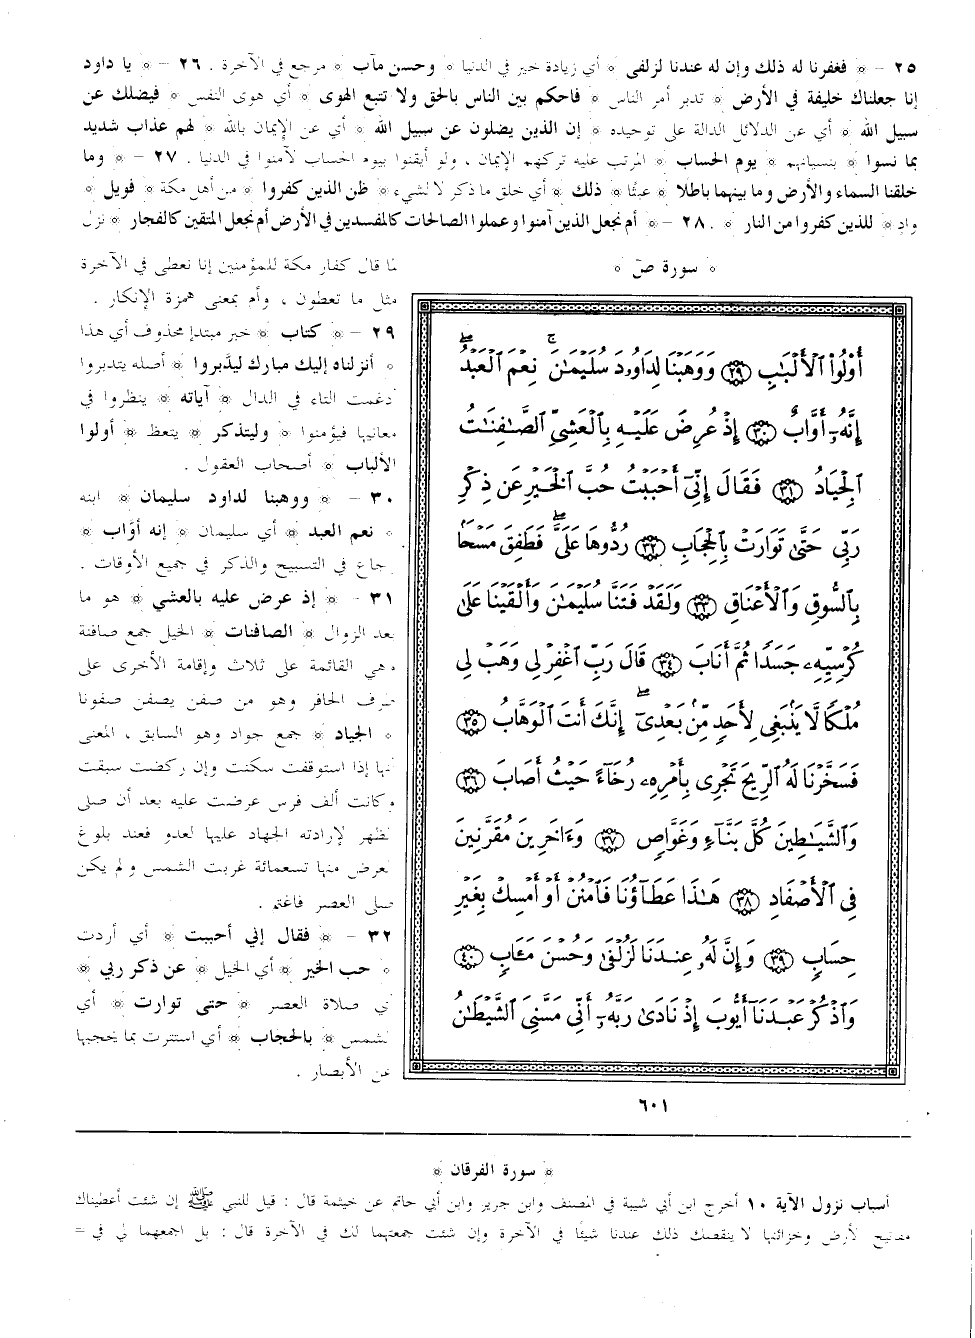 ٢٥ – ﴿ فغفرنا له ذلك وإن له عندنا لزلفى ﴾ أي زيادة خير في الدنيا ﴿ وحسن مآب ﴾ مرجع في الآخرة . ٢٦ – ﴿ يا داود
إنا جعلناك خليفة في الأرض ﴾ تدبر أمر الناس ﴿ فاحكم بين الناس بالحق ولا تتبع الهوى ﴾ أي هوى النفس ﴿ فيضلك عن
سبيل الله ﴾ أي عن الدلائل الدالة على توحيده ﴿ إن الذين يضلون عن سبيل الله ﴾ أي عن الإيمان بالله ﴿ لهم عذاب شديد
بما نسوا ﴾ بنسيانهم ﴿ يوم الحساب ﴾ المرتب عليه تركهم الإيمان ، ولو أيقنوا بيوم الحساب لآمنوا في الدنيا . ٢٧ – ﴿ وما
خلقنا السماء والأرض وما بينهما باطلا ﴾ عبثًا ﴿ ذلك ﴾ أي خلق ما ذكر لا لشيء ﴿ ظن الذين كفروا ﴾ من أهل مكة ﴿ فويل ﴾
واد ﴿ للذين كفروا من النار ﴾ . ٢٨ – ﴿ أم نجعل الذين آمنوا وعملوا الصالحات كالمفسدين في الأرض أم نجعل المتقين كالفجار ﴾ نزل
لما قال كفار مكة للمؤمنين إنا نعطى في الآخرة
مثل ما تعطون ، وأم بمعنى همزة الإنكار .
٢٩ – ﴿ كتاب ﴾ خبر مبتدإ محذوف أي هذا
﴿ أنزلناه إليك مبارك ليدَّبروا ﴾ أصله يتدبروا
أدغمت التاء في الدال ﴿ آياته ﴾ ينظروا في
معانيها فيؤمنوا ﴿ وليتذكر ﴾ يتعظ ﴿ أولوا
الألباب ﴾ أصحاب العقول .
٣٠ – ﴿ ووهبنا لداود سليمان ﴾ ابنه
﴿ نعم العبد ﴾ أي سليمان ﴿ إنه أوَّاب ﴾
رجاع في التسبيح والذكر في جميع الأوقات .
٣١ – ﴿ إذ عرض عليه بالعشي ﴾ هو ما
بعد الزوال ﴿ الصافنات ﴾ الخيل جمع صافنة
وهي القائمة على ثلاث وإقامة الأخرى على
طرف الحافر وهو من صفن يصفن صفونا
﴿ الجياد ﴾ جمع جواد وهو السابق ، المعنى
أنها إذا استوقفت سكنت وإن ركضت سبقت
وكانت ألف فرس عرضت عليه بعد أن صلى
الظهر لإرادته الجهاد عليها لعدو فعند بلوغ
العرض منها تسعمائة غربت الشمس ولم يكن
صلى العصر فاغتم .
٣٢ – ﴿ فقال إني أحببت ﴾ أي أردت
﴿ حب الخير ﴾ أي الخيل ﴿ عن ذكر ربي ﴾
أي صلاة العصر ﴿ حتى توارت ﴾ أي
الشمس ﴿ بالحجاب ﴾ أي استترت بما يحجبها
عن الأبصار .
﴿ سورة صٓ ﴾
أُوْلُواْ ٱلْأَلْبَٰبِ ٢٩ وَوَهَبْنَا لِدَاوُۥدَ سُلَيْمَٰنَ ۚ نِعْمَ ٱلْعَبْدُ ۖ
إِنَّهُۥٓ أَوَّابٌ ٣٠ إِذْ عُرِضَ عَلَيْهِ بِٱلْعَشِيِّ ٱلصَّٰفِنَٰتُ
ٱلْجِيَادُ ٣١ فَقَالَ إِنِّىٓ أَحْبَبْتُ حُبَّ ٱلْخَيْرِ عَن ذِكْرِ
رَبِّى حَتَّىٰ تَوَارَتْ بِٱلْحِجَابِ ٣٢ رُدُّوهَا عَلَىَّ ۖ فَطَفِقَ مَسْحًا
بِٱلسُّوقِ وَٱلْأَعْنَاقِ ٣٣ وَلَقَدْ فَتَنَّا سُلَيْمَٰنَ وَأَلْقَيْنَا عَلَىٰ
كُرْسِيِّهِۦ جَسَدًا ثُمَّ أَنَابَ ٣٤ قَالَ رَبِّ ٱغْفِرْ لِى وَهَبْ لِى
مُلْكًا لَّا يَنۢبَغِى لِأَحَدٍ مِّنۢ بَعْدِىٓ ۖ إِنَّكَ أَنتَ ٱلْوَهَّابُ ٣٥
فَسَخَّرْنَا لَهُ ٱلرِّيحَ تَجْرِى بِأَمْرِهِۦ رُخَآءً حَيْثُ أَصَابَ ٣٦
وَٱلشَّيَٰطِينَ كُلَّ بَنَّآءٍ وَغَوَّاصٍ ٣٧ وَءَاخَرِينَ مُقَرَّنِينَ
فِى ٱلْأَصْفَادِ ٣٨ هَٰذَا عَطَآؤُنَا فَٱمْنُنْ أَوْ أَمْسِكْ بِغَيْرِ
حِسَابٍ ٣٩ وَإِنَّ لَهُۥ عِندَنَا لَزُلْفَىٰ وَحُسْنَ مَـَٔابٍ ٤٠
وَٱذْكُرْ عَبْدَنَآ أَيُّوبَ إِذْ نَادَىٰ رَبَّهُۥٓ أَنِّى مَسَّنِىَ ٱلشَّيْطَٰنُ
٦٠١
﴿ سورة الفرقان ﴾
أسباب نزول الآية ١٠ أخرج ابن أبي شيبة في المصنف وابن جرير وابن أبي حاتم عن خيثمة قال : قيل للنبي ﷺ إن شئت أعطيناك
مفاتيح الأرض وخزائنها لا ينقصك ذلك عندنا شيئًا في الآخرة وإن شئت جمعتهما لك في الآخرة قال : بل اجمعهما لي في =